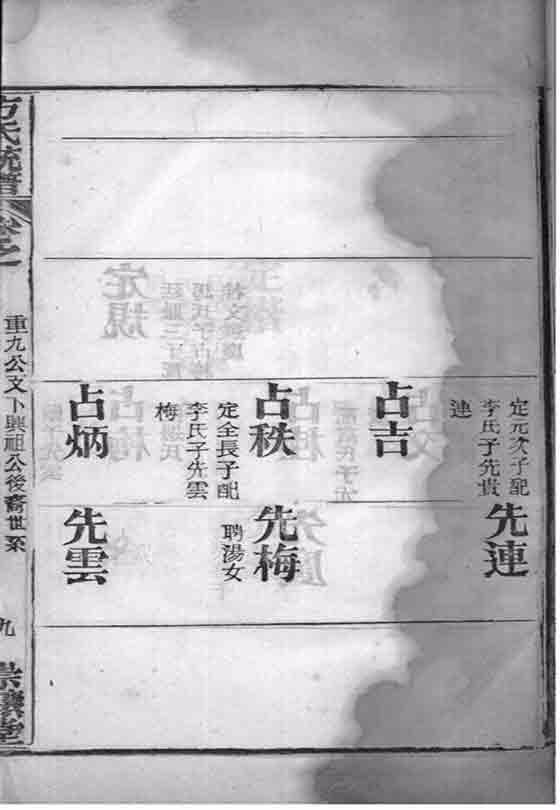 定元次子配
李氏子先貴
連
占吉
定全長子配
李氏子先雲
梅
占秩
占炳
先連
聘湯女
先梅
先雲
方氏統譜
卷之
重九公文卜興祖公後裔世系
九